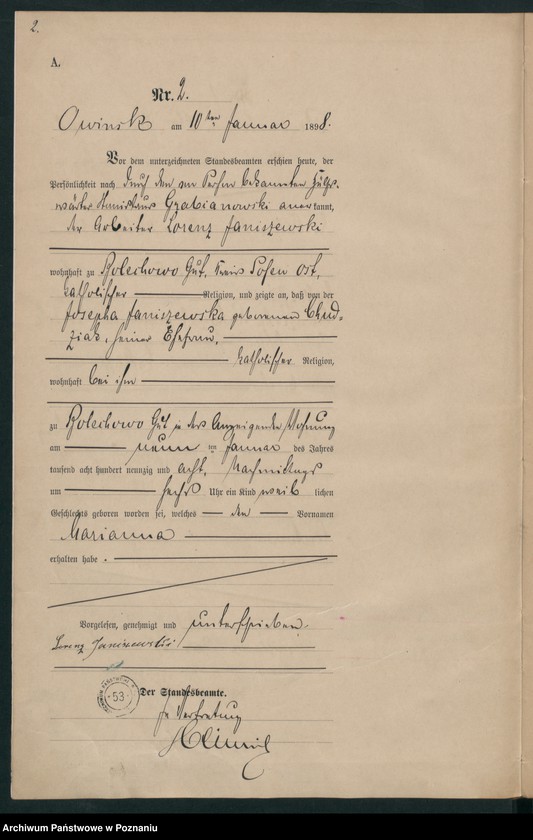 2.
A.
Nr. 2.
Owinsk am 10ten Januar 1898.
Vor dem unterzeichneten Standesbeamten erschien heute, der
Persönlichkeit nach durch den von Person bekannten Hülfs-
wärter Grabianowski anerkannt,
der Arbeiter Lorenz Janiszewski
wohnhaft zu Bolechowo Gut, Kreis Posen Ost,
katholischer Religion, und zeigte an, daß von der
Josepha Janiszewska geborenen Chud-
ziak, seiner Ehefrau,
katholischer Religion,
wohnhaft bei ihm
zu Bolechowo Gut in des Anzeigenden Wohnung
am neunten Januar des Jahres
tausend acht hundert neunzig und acht, Nachmittags
um sechs Uhr ein Kind weiblichen
Geschlechts geboren worden sei, welches den Vornamen
Marianna
erhalten habe.
Vorgelesen, genehmigt und unterschrieben.
Lorenz Janiszewski
Der Standesbeamte.
53
In Vertretung
Archiwum Państwowe w Poznaniu